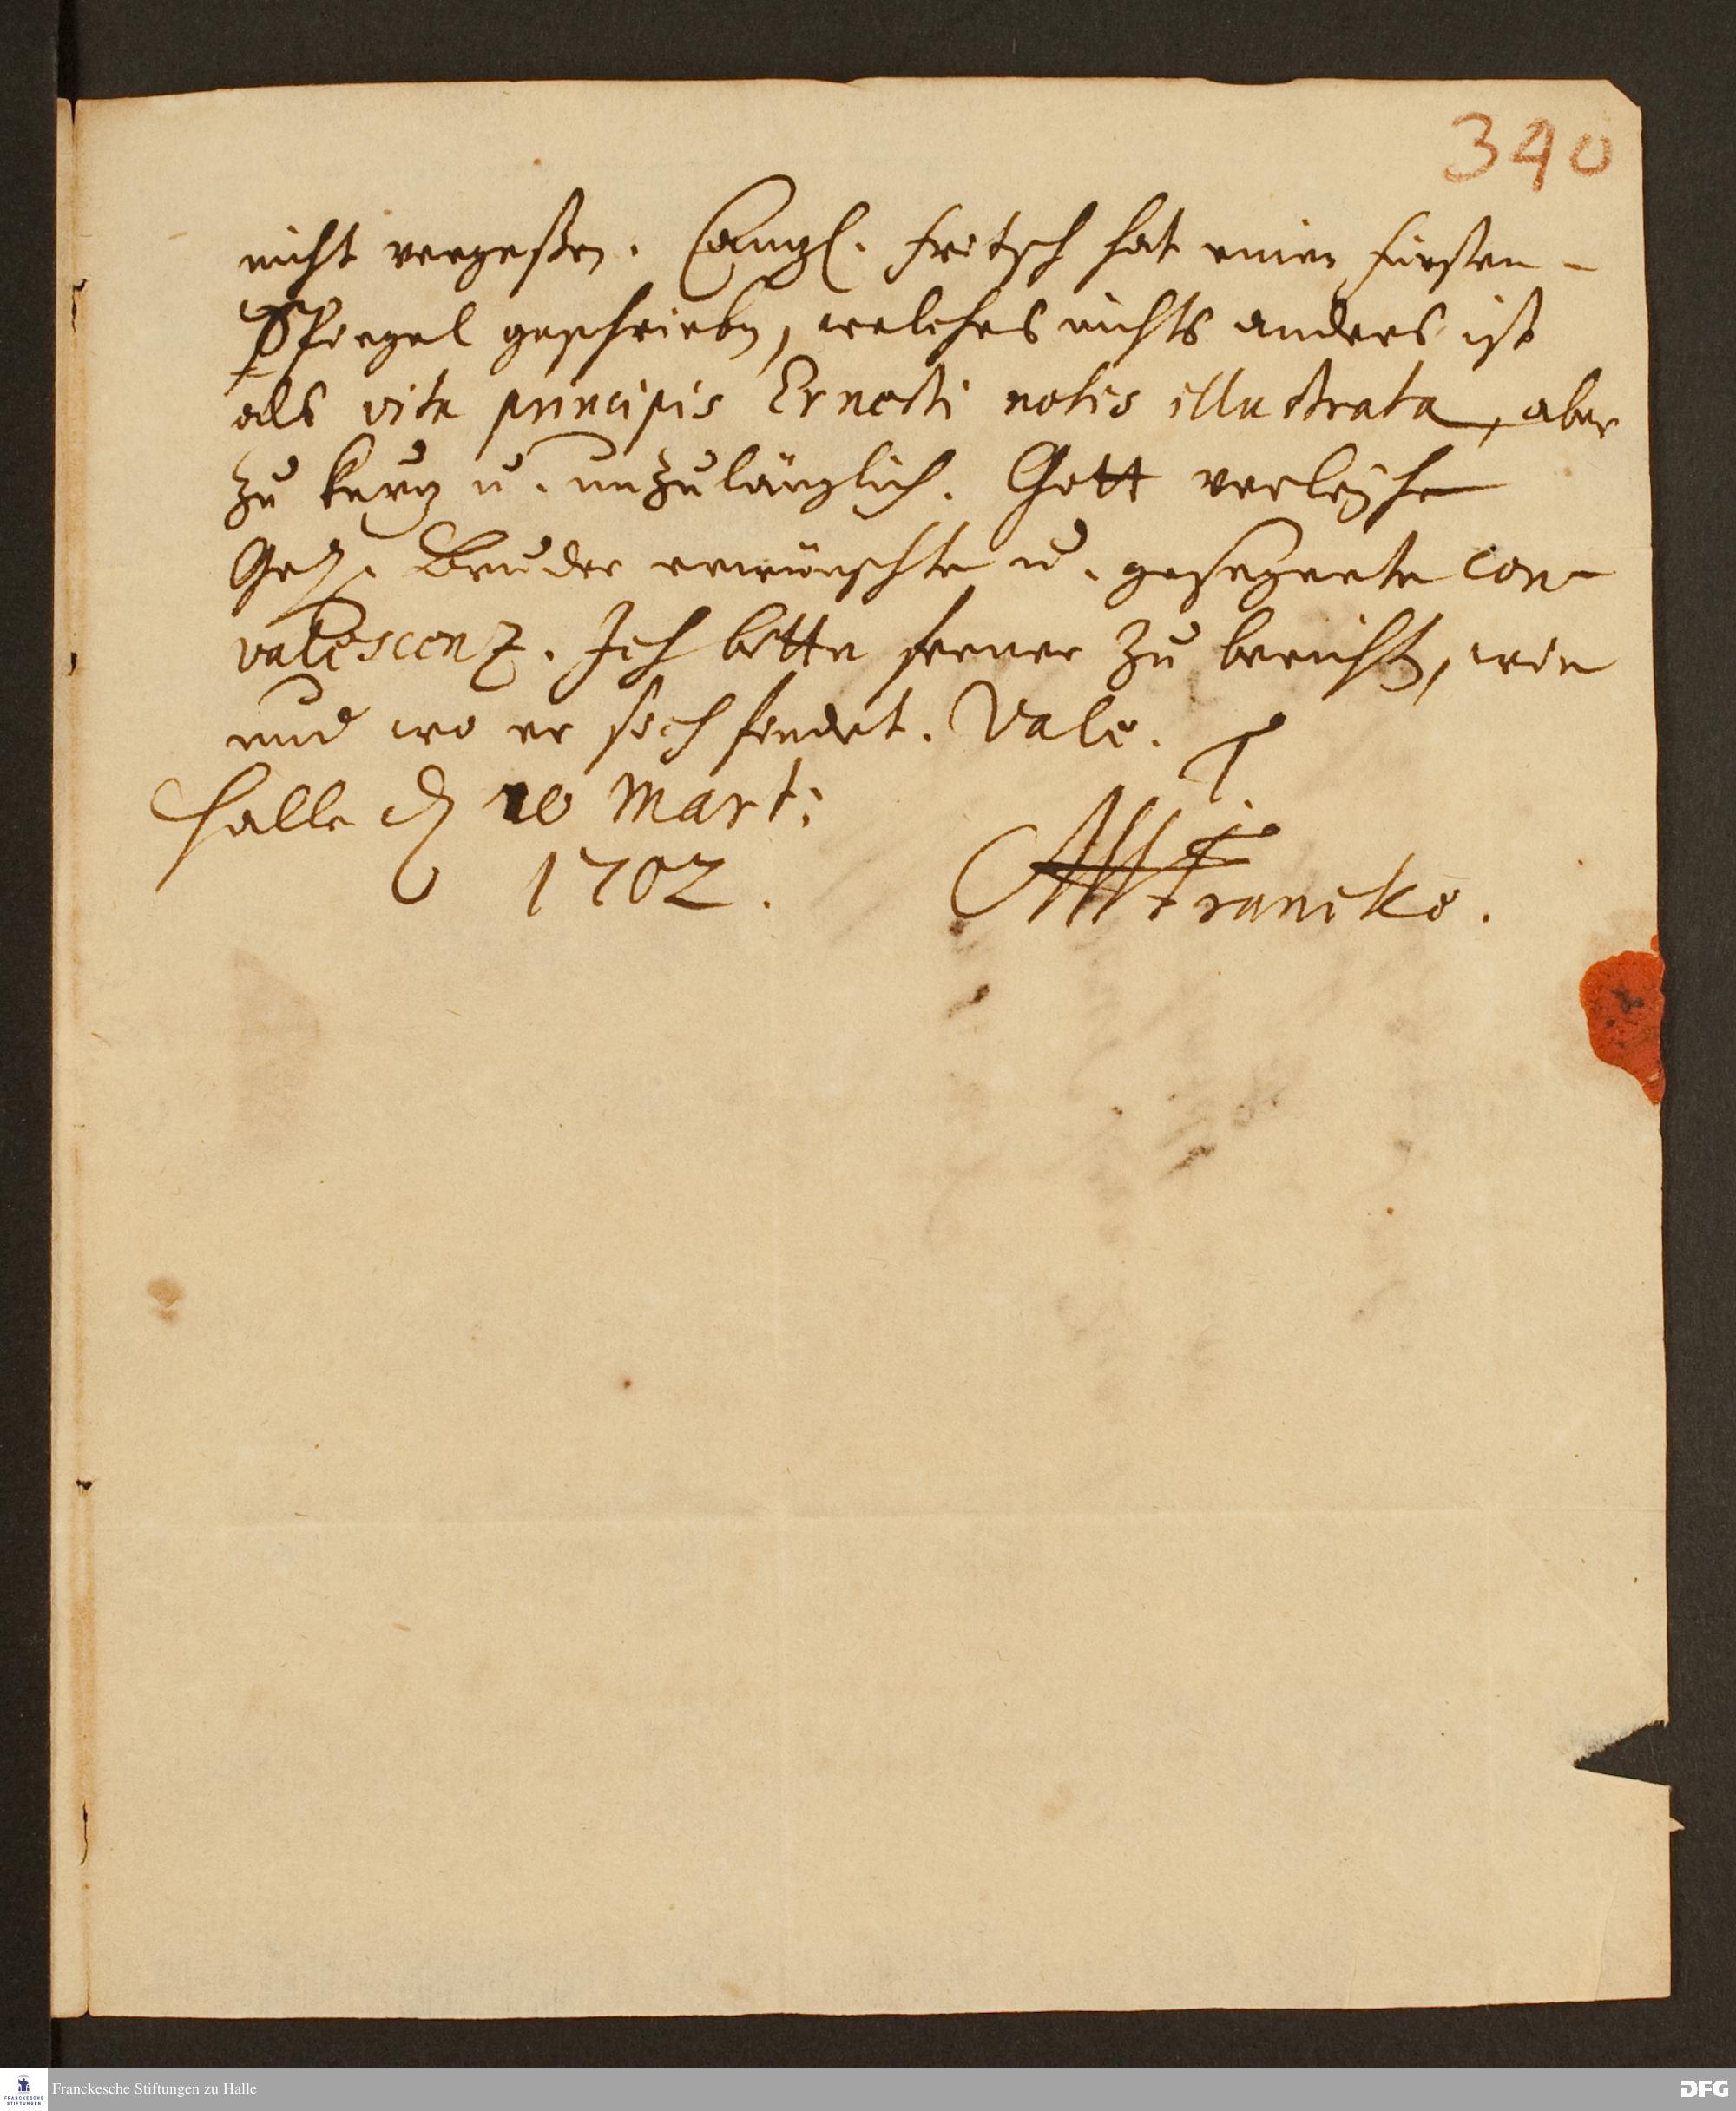 340
nicht vergeßen. Cantzl. Fritsch hat einen Fürsten-
Spiegel geschrieben, welches nichts anders ist
als vita principis Ernesti notis illustrata, aber
zu kurtz u. unzulänglich. Gott verleyhe
Bruder erwünschte u. gesegnete con-
valescenz. Ich bitte ferner zu bericht, wie
und wo er sich findet. Vale.
Halle d 10 Mart:
1702.
T
AHFrancke.
Franckesche Stiftungen zu Halle
FRANCKESCHE STIFTUNGEN
DFG